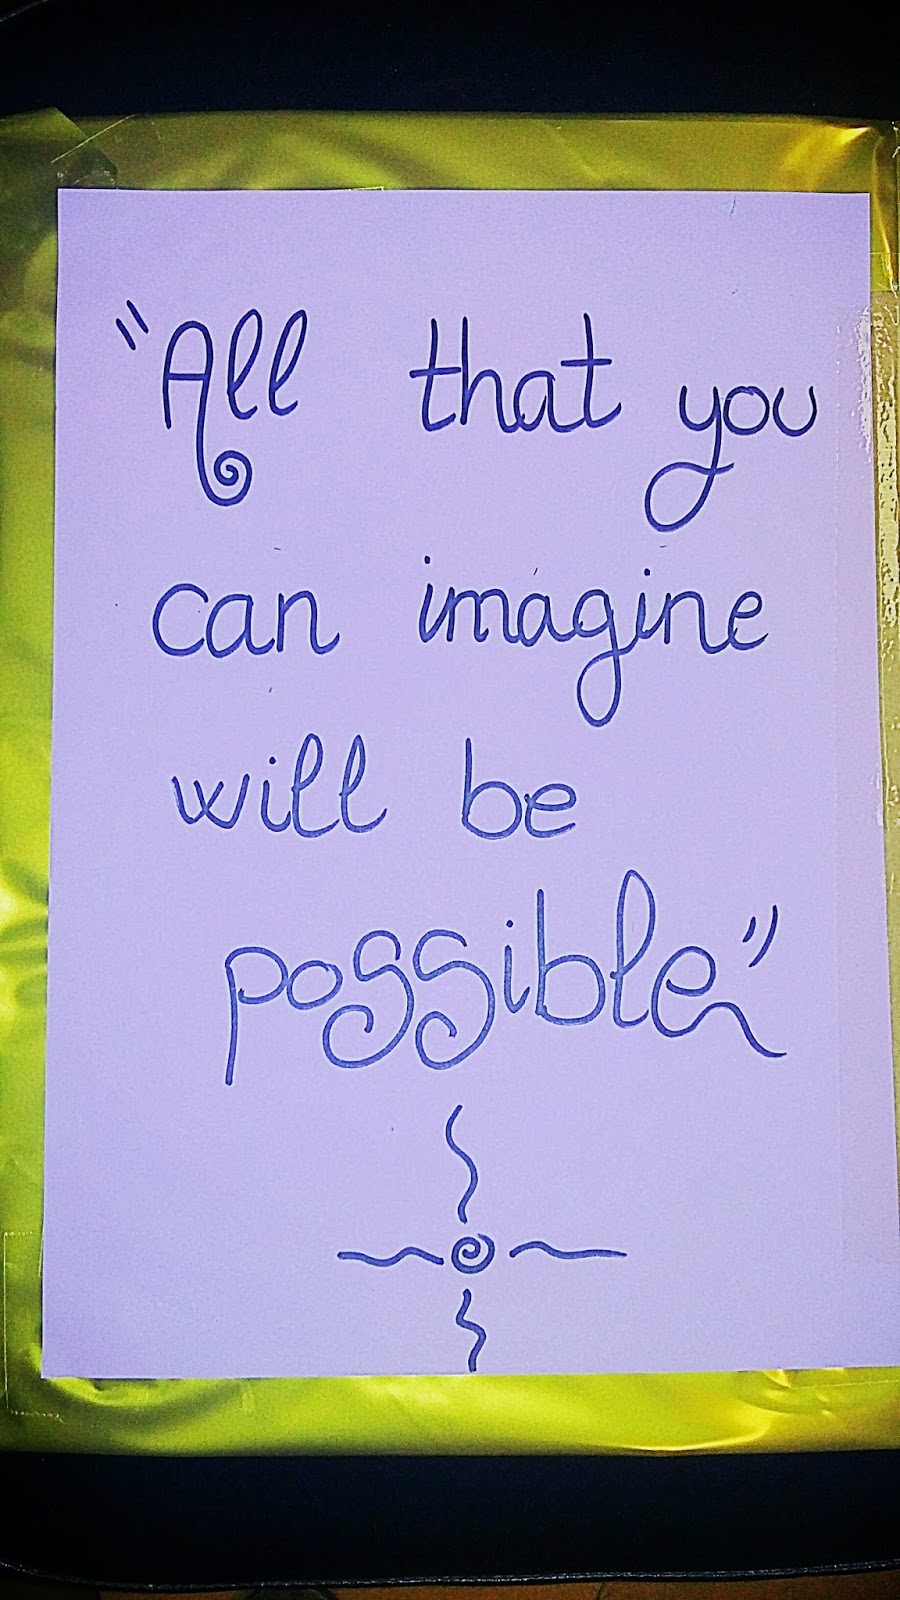 "All that you
can imagine
will be
possible"